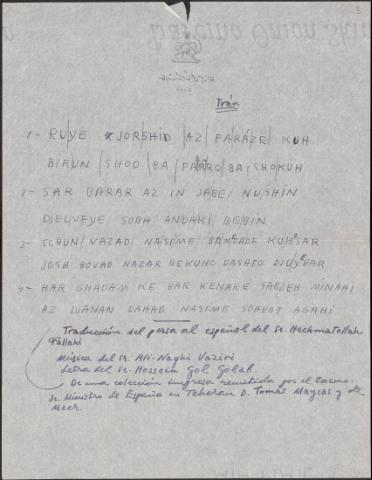 3
Irán
1- RUYE XJORSHID AZ FARÁZE KUH
BIRUN SHOD BA FARRO BA SHOKUH
2- SAR BARAR AZ IN JABE NUSHIN
DJELVEYE SOBH ANDAKI BEBIN
3- TCHUN VAZAD NASIME BAMDADE KUHSAR
JOSH BOVAD NAZAR BEKUHO DASHTO
4- HAR GHADAM KE BAR KENARE SABZEH MINAHI
AZ DJANAN DAHAD NASIME SOHBAT AGAHI
Traducción del persa al español del Sr. Hechmatollah
Fallahi
Música del Sr. Ali-Naghi Vaziri
Letra del Sr. Hossein Gol Golab.
De una colección impresa remitida por el Excmo.
Sr. Ministro de España en Teheran D. Tomás y de